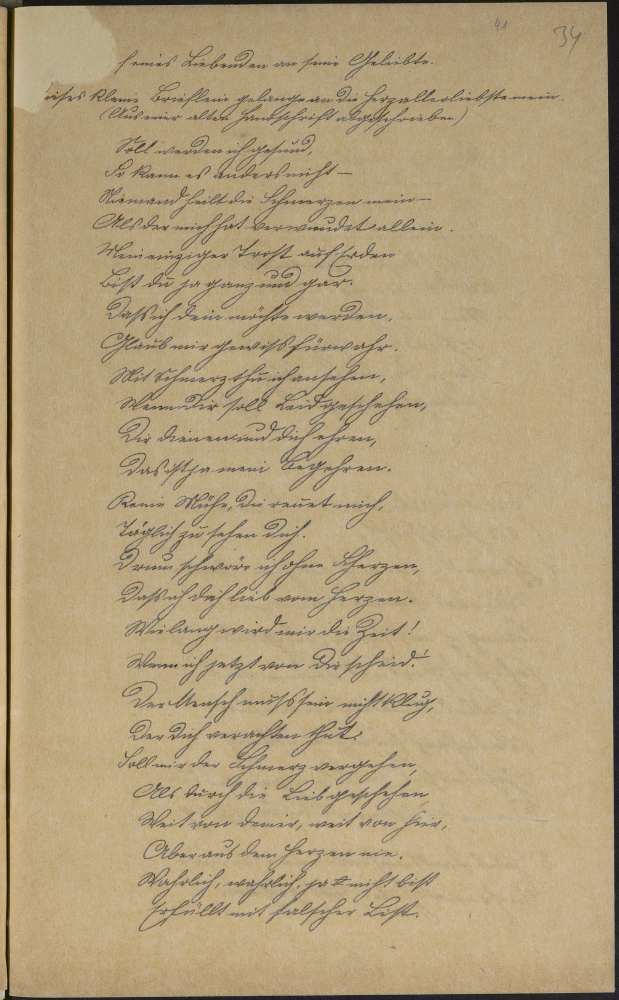 41
34
eines Liebenden an seine Geliebte.
dieses kleine Brieflein gelange an die herzallerliebste mein.
(Aus einer alten Handschrift abgeschrieben)
Soll werden ich gesund,
So kann es anders nicht —
Niemand heilt die Schmerzen mein —
Als der mich hat verwundet allein.
Mein einziger Trost auf Erden
bist du ja ganz und gar.
Dass ich dein möchte werden,
Glaub mir gewiss fürwahr.
Mit Schmerz thu ich ansehen,
Wenn Dir soll Leid geschehen,
Dir dienen und dich ehren,
Das ist ja mein Begehren.
Keine Mühe, die reuet mich,
Täglich zu sehen Dich.
Drum schwöre ich ohne Scherzen,
Dass ich dich lieb vom Herzen.
Wie lang wird mir die Zeit!
Wenn ich jetzt von Dir scheid!
Der Mensch muss sein nicht klug,
Der Dich verachten thut.
Soll mir der Schmerz vergehen,
Als durch die Lieb geschehen
Weit von dannen, weit von hier,
Aber aus dem Herzen nie.
Wahrlich, wahrlich, ja nicht bist
Erfüllt mit falscher List.